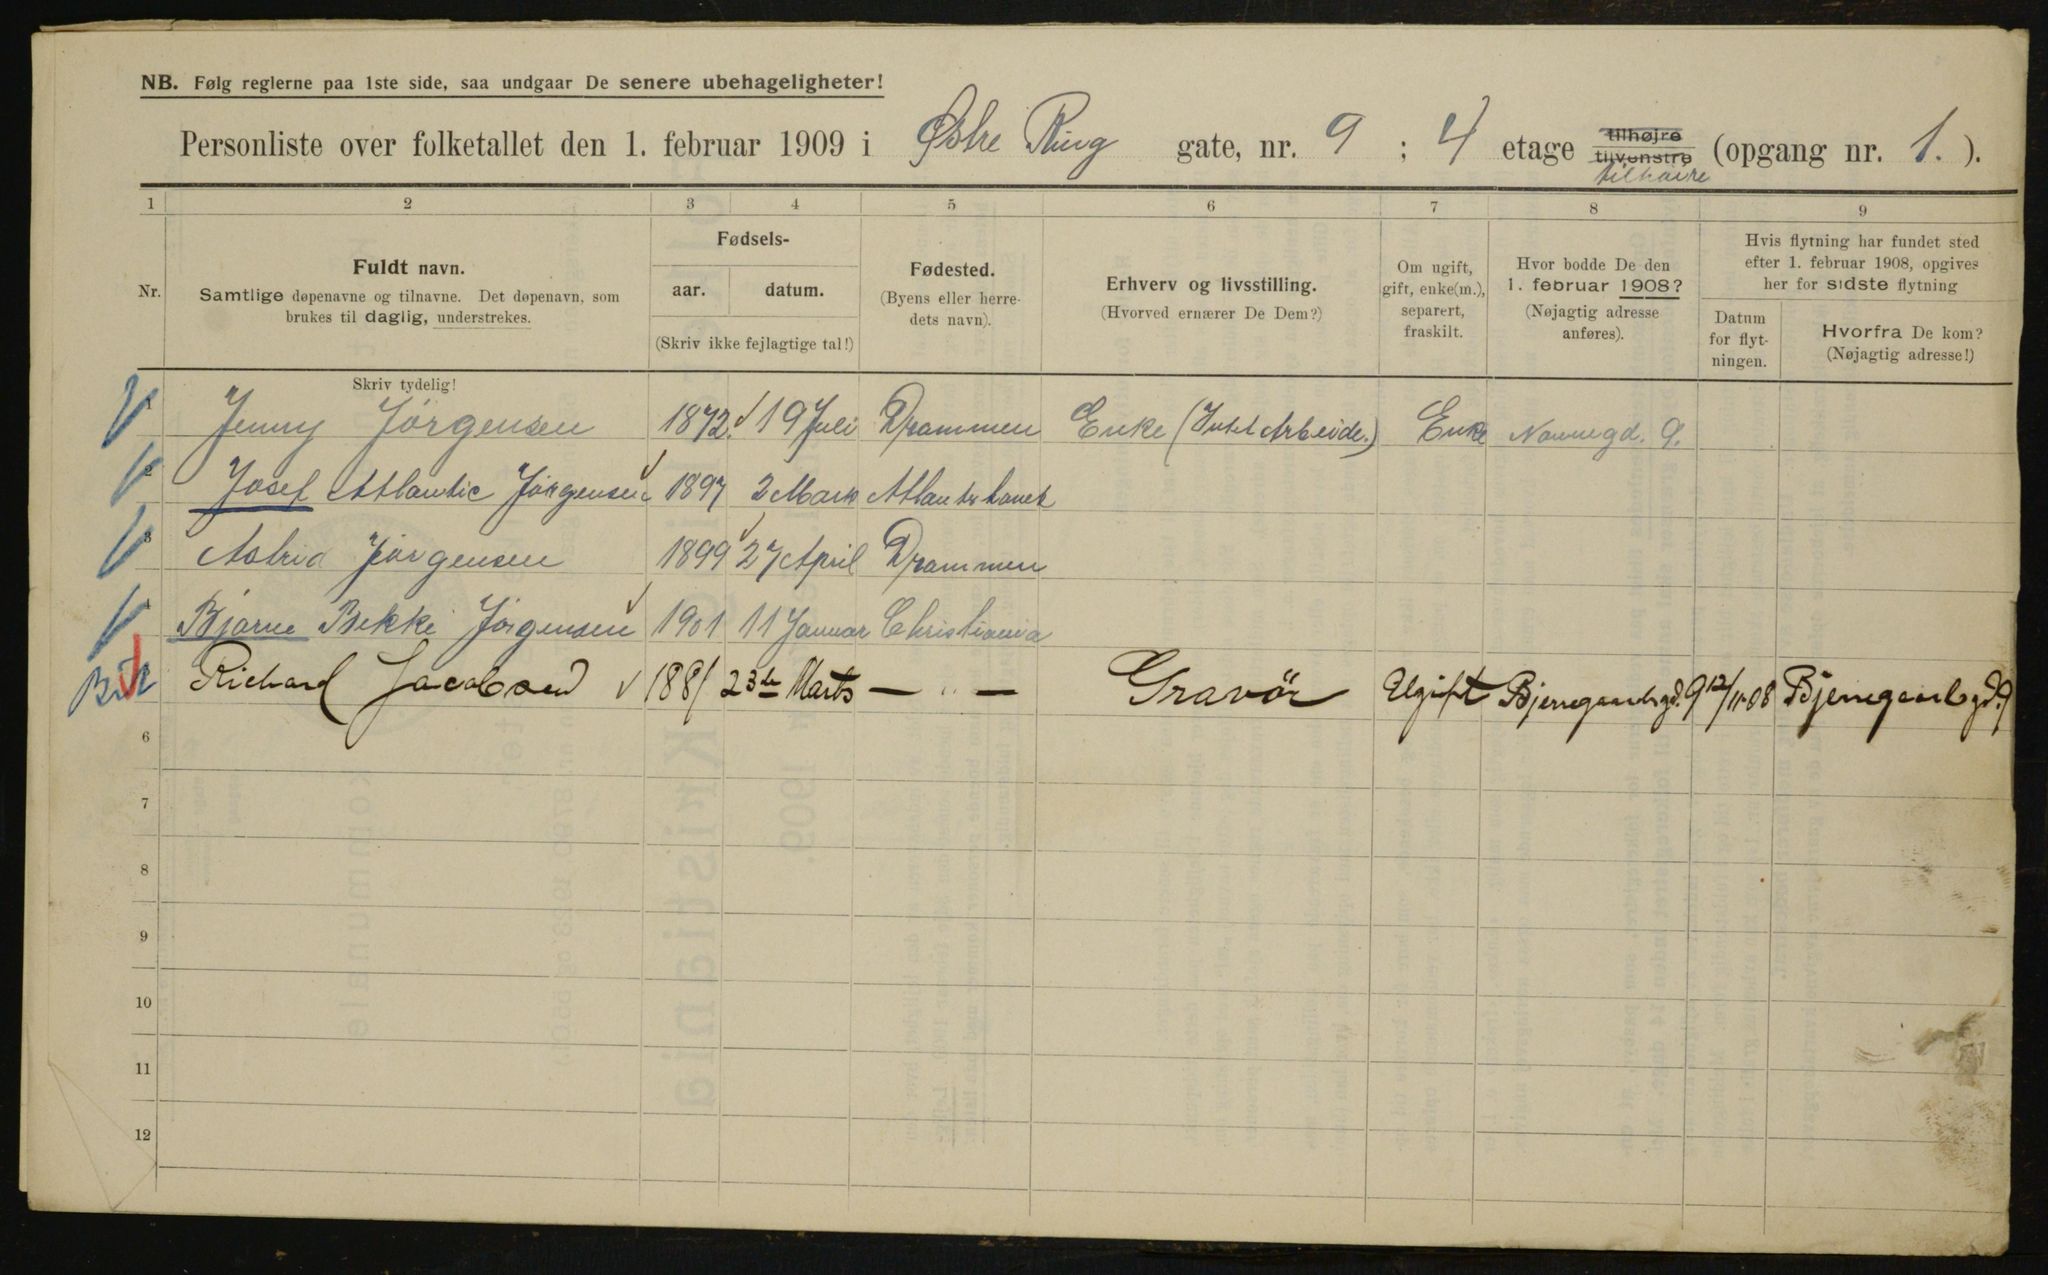 NB. Følg reglerne paa 1ste side, saa undgaar De senere ubehageligheter!
Personliste over folketallet den 1. februar 1909 i Østre Ring gate, nr. 9 ; 4 etage tilhøjre tilvenstre (opgang nr. 1.).
tilhøire
1 2 3 4 5 6 7 8 9
Nr.
Fuldt navn.
Samtlige døpenavne og tilnavne. Det døpenavn, som
brukes til daglig, understrekes.
Skriv tydelig!
Fødsels-
aar. datum.
(Skriv ikke fejlagtige tal!)
Fødested.
(Byens eller herre-
dets navn).
Erhverv og livsstilling.
(Hvorved ernærer De Dem?)
Om ugift,
gift, enke(m.),
separert,
fraskilt.
Hvor bodde De den
1. februar 1908?
(Nøjagtig adresse
anføres).
Hvis flytning har fundet sted
efter 1. februar 1908, opgives
her for sidste flytning
Datum
for flyt-
ningen.
Hvorfra De kom?
(Nøjagtig adresse!)
Jenny Jörgensen 1872. 19 Juli Drammen Enke (Intet Arbeide.) Enke 9.
2 Josef Atlantic Jörgensen 1897 2 Marts
3 Astrid Jörgensen 1899 27 April Drammen
4 Bjarne Bekke Jörgensen 1901 11 Januar Christiania
Richard Jacobsen 1881 23de Marts — " — Gravör Ugift Bjerregaardsgd. 9 12/11-08 Bjerregaardsgd. 9
6
7
8
9
10
11
12